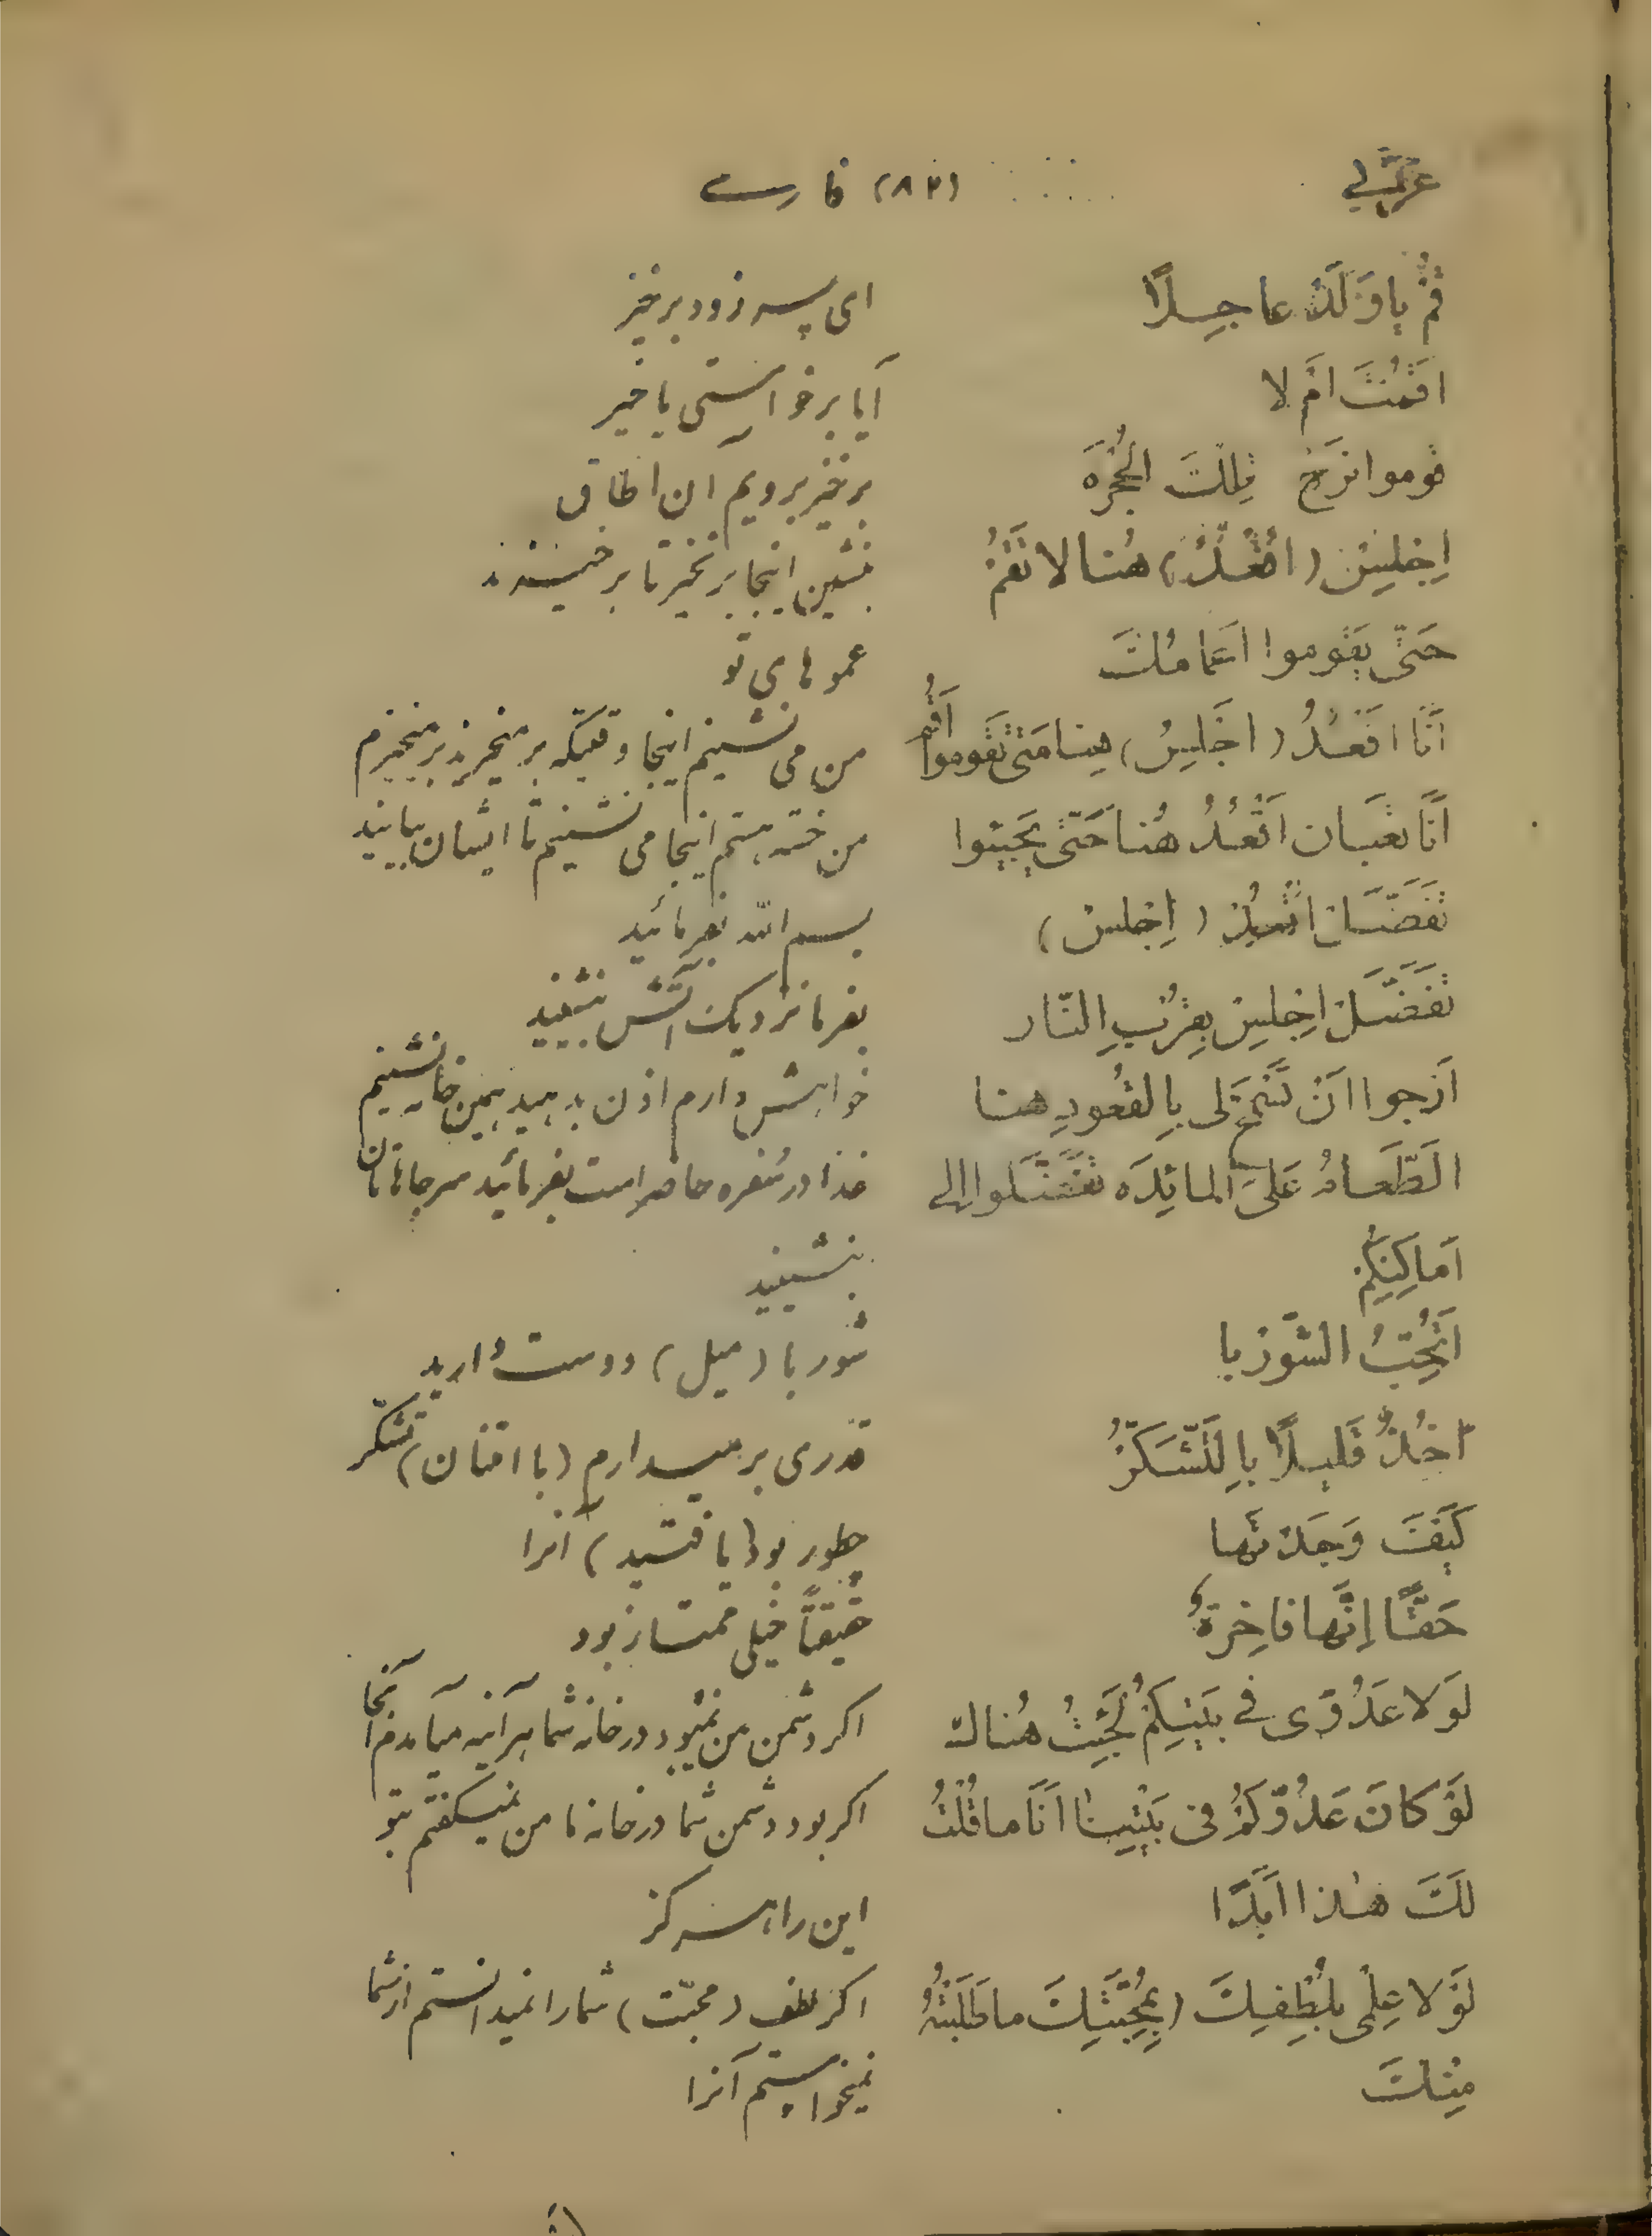 عربی (۸۲) فارسے
قُمْ یا وَلَدْ عاجِلًا ای پسر زود برخیز
اَقُمْتَ اَمْ لا آیا برخواستی یا خیر
قوموا نَرَحْ تِلْکَ الْحُجْرَه برخیز برویم آن اطاق
اِجْلِسْ (اُقْعُدْ) هُنا لا تَقُمْ بنشین اینجا برنخیر تا برخیزند
حَتّی یَقوموا اَعمامُکَ عموهای تو
اَنَا اَقْعُدُ (اَجْلِسُ) هینا مَتی تَقوموا اَقُم من می نشینم اینجا وقتیکه برمنخیرید برمنخیزم
اَنَا تَعْبان اَقْعُدُ هُنا حَتّی یَجیئوا من خسته هستم اینجا می نشینم تا ایشان بیایند
تَفَضَّلْ اُقْعُدْ (اِجْلِسْ) بسم الله بفرمائید
تَفَضَّلْ اِجْلِسْ بِقُرْبِ النّار بفرما نزدیک آتش بنشینید
اَرْجوا اَنْ تَسْمَحَ لی بِالقُعودِ هنا خواهش دارم اذن بدهید همین خانه نشینم
اَلطَّعامُ عَلَی المائِدَه تَفَضَّلوا اِلی غذا در سفره حاضر است بفرمائید سر جاهاتان
اَماکِنِکُمْ بنشینید
اَتُحِبُّ الشّورْبا شوربا (میل) دوست دارید
آخُذُ قَلیلًا بِالتَّشَکُّرْ قدری برمیدارم (با امتنان) تشکّر
کَیْفَ وَجَدْتَها چطور بود (یافتید) آنرا
حَقًّا اِنَّها فاخِرَةٌ حقیقتًا خیلی ممتاز بود
لَوْلا عَدُوّی فی بَیْتِکُمْ لَجِئْتُ هُناکَ اگر دشمن من نمیبود در خانه شما هر آینه میآمدم آنجا
لَوْ کانَ عَدُوُّکُمْ فی بَیْتِنا اَنَا ما قُلْتُ اگر بود دشمن شما در خانه ما من نمیگفتم بتو
لَکَ هٰذا اَبَدًا این را هرگز
لَوْلا عِلْمی بِلُطْفِکَ (بِمُحَبَّتِکَ) ما طَلَبْتُهُ اگر لطف (محبّت) شما را نمیدانستم از شما
مِنْکَ نمیخواستم آنرا